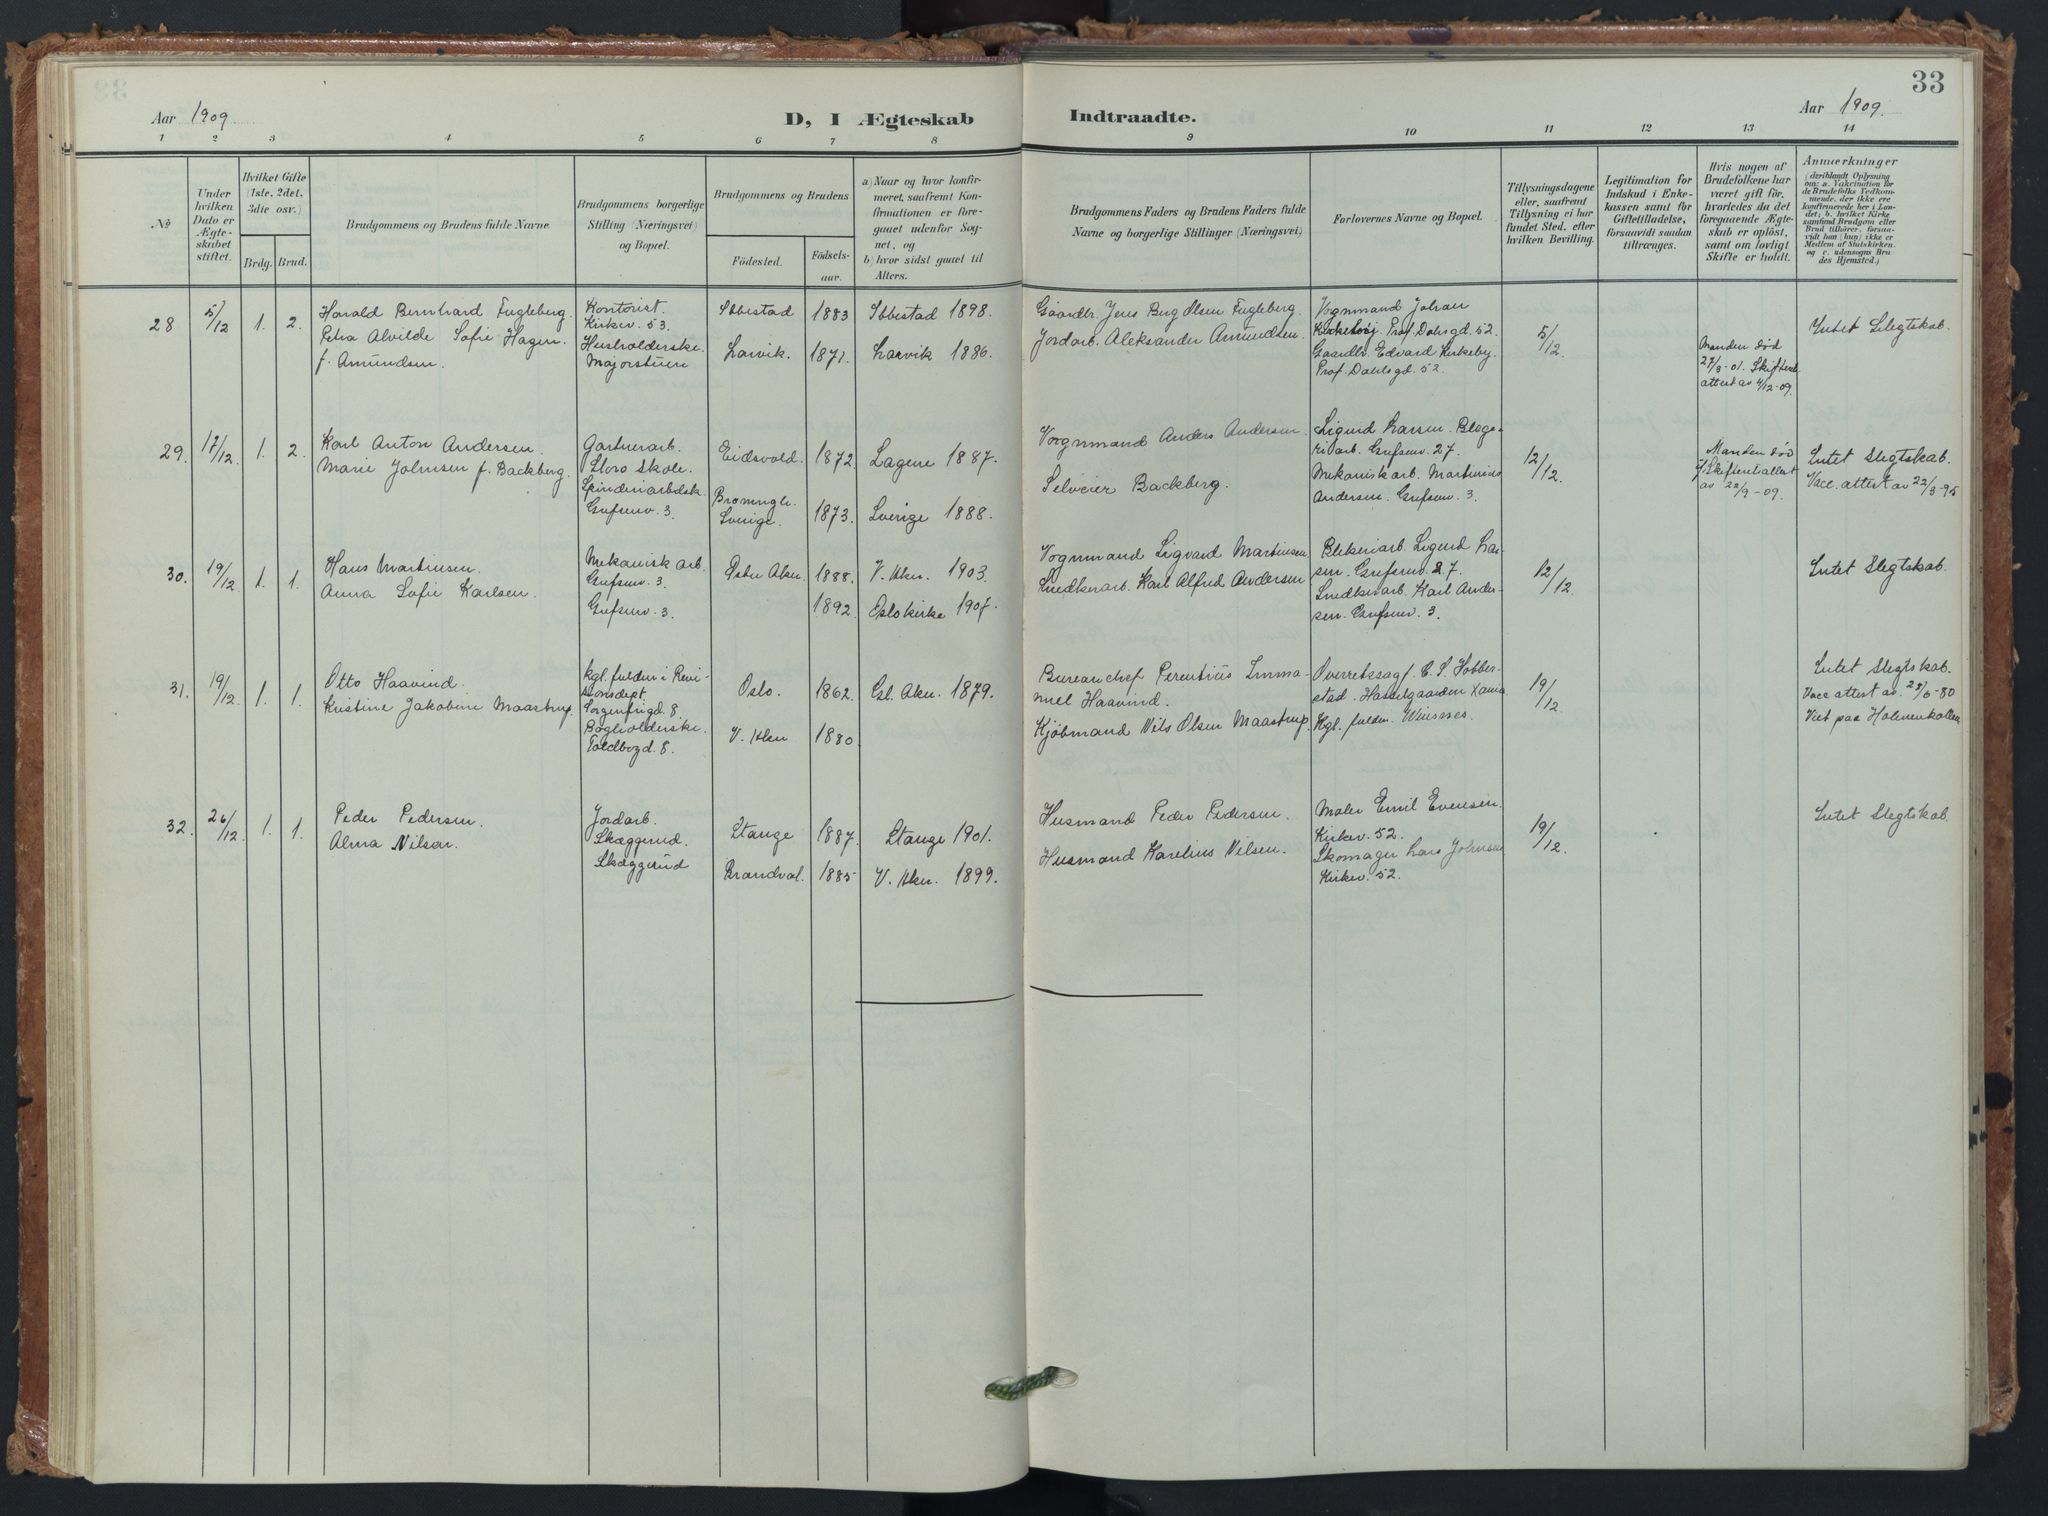 33
Aar 1909
D, I Ægteskab Indtraadte.
Aar 1909.
1 2 3 4 5 6 7 8 9 10 11 12 13 14
№
Under hvilken Dato er Ægteskabet stiftet.
Hvilket Gifte (1ste, 2det, 3die osv.)
Brdg. Brud.
Brudgommens og Brudens fulde Navne
Brudgommens borgerlige Stilling (Næringsvei) og Bopæl.
Brudgommens og Brudens
Födested. Födselsaar.
a) Naar og hvor konfirmeret, saafremt Konfirmationen er foregaaet udenfor Sognet, og
b) hvor sidst gaaet til Alters.
Brudgommens Faders og Brudens Faders fulde Navne og borgerlige Stillinger (Næringsvei)
Forlovernes Navne og Bopæl.
Tillysningsdagene eller, saafremt Tillysning ei har fundet Sted, efter hvilken Bevilling.
Legitimation for Indskud i Enkekassen samt for Giftetilladelse, forsaavidt saadan tiltrænges.
Hvis nogen af Brudefolkene har været gift för, hvorledes da det foregaaende Ægteskab er oplöst, samt om lovligt Skifte er holdt.
Anmærkninger
(deriblandt Oplysning om: a. Vakcination for de Brudefolks Vedkommende, der ikke ere konfirmerede her i Landet; b. hvilket Kirkesamfund Brudgom eller Brud tilhörer, forsaavidt han (hun) ikke er Medlem af Statskirken, og c. udensogns Brudes Hjemsted.)
28 5/12 1. 2.
Harald Bernhard Fugleberg.
Petra Alvilde Sofie Hagen
f. Amundsen.
Kontorist.
Kirkev. 53.
Husholderske.
Majorstuen
Ibbestad 1883 Ibbestad 1898.
Larvik. 1871. Larvik 1886.
Gaardbr. Jens Olsen Fugleberg.
Jordarb. Aleksander Amundsen.
Vognmand Johan
Prof. Dahlsgd. 52.
Gaardbr. Edvard Kirkeby
Prof. Dahlsgd. 52.
5/12
Manden död
27/3-01. Skifteret.
attest av 4/12-09.
Intet Slegtskab.
29. 17/12 1. 2
Karl Anton Andersen.
Marie Johnsen f. Backberg.
Gartnerarb.
Storo Skole.
Spinderiarbdsk.
Grefsenv. 3.
Eidsvold. 1872. 1887.
Sverige. 1873. Sverige 1888.
Vognmand Anders Andersen.
Backberg.
Sigurd Larsen.
Grefsenv. 27.
Mekanisk arb. Martinius
Andersen. Grefsenv. 3.
12/12
Manden död
Skifteretattest
av 22/9-09.
Intet Slegtskab.
Vacc. attest av 22/3-95
30. 19/12 1. 1.
Hans Martinsen.
Anna Sofie Karlsen.
Mekanisk arb.
Grefsenv. 3.
Grefsenv. 3.
Östre Aker. 1888. V. Aker. 1903.
1892 Oslo kirke 1907.
Vognmand Sigvard Martinsen
Snedkerarb. Karl Alfred Andersen
Blekeriarb. Sigurd Larsen.
Grefsenv. 27.
Snedkerarb. Karl Andersen.
Grefsenv. 3.
12/12.
Intet Slegtskab.
31. 19/12 1. 1.
Otto Haavind.
Kristine Jakobine Maastrup.
kgl. fuldm. i Revisionsdept.
Sorgenfrigd. 8
Bogholderske.
Toldbogd. 8.
Oslo. 1862. Gl. Aker. 1879.
V. Aker 1880.
Bureauchef Immanuel Haavind.
Kjöbmand Nils Olsen Maastrup.
Overretssagf. C. S. Hobberstad.
Hasselgaarden Xania
Kgl. fuldm.
19/12
Intet Slegtskab.
Viet paa Holmenkollen
32. 26/12 1. 1.
Peder Pedersen.
Alma Nilsen.
Jordarb.
Skæggerud.
Skæggerud
Stange 1887. Stange 1901.
Brandval. 1885 V. Aker. 1899.
Husmand Peder Pedersen.
Husmand Karelius Nilsen.
Maler Emil Evensen.
Kirkev. 52.
Skomager Lars Johnsen
Kirkev. 52.
19/12.
Intet Slegtskab.